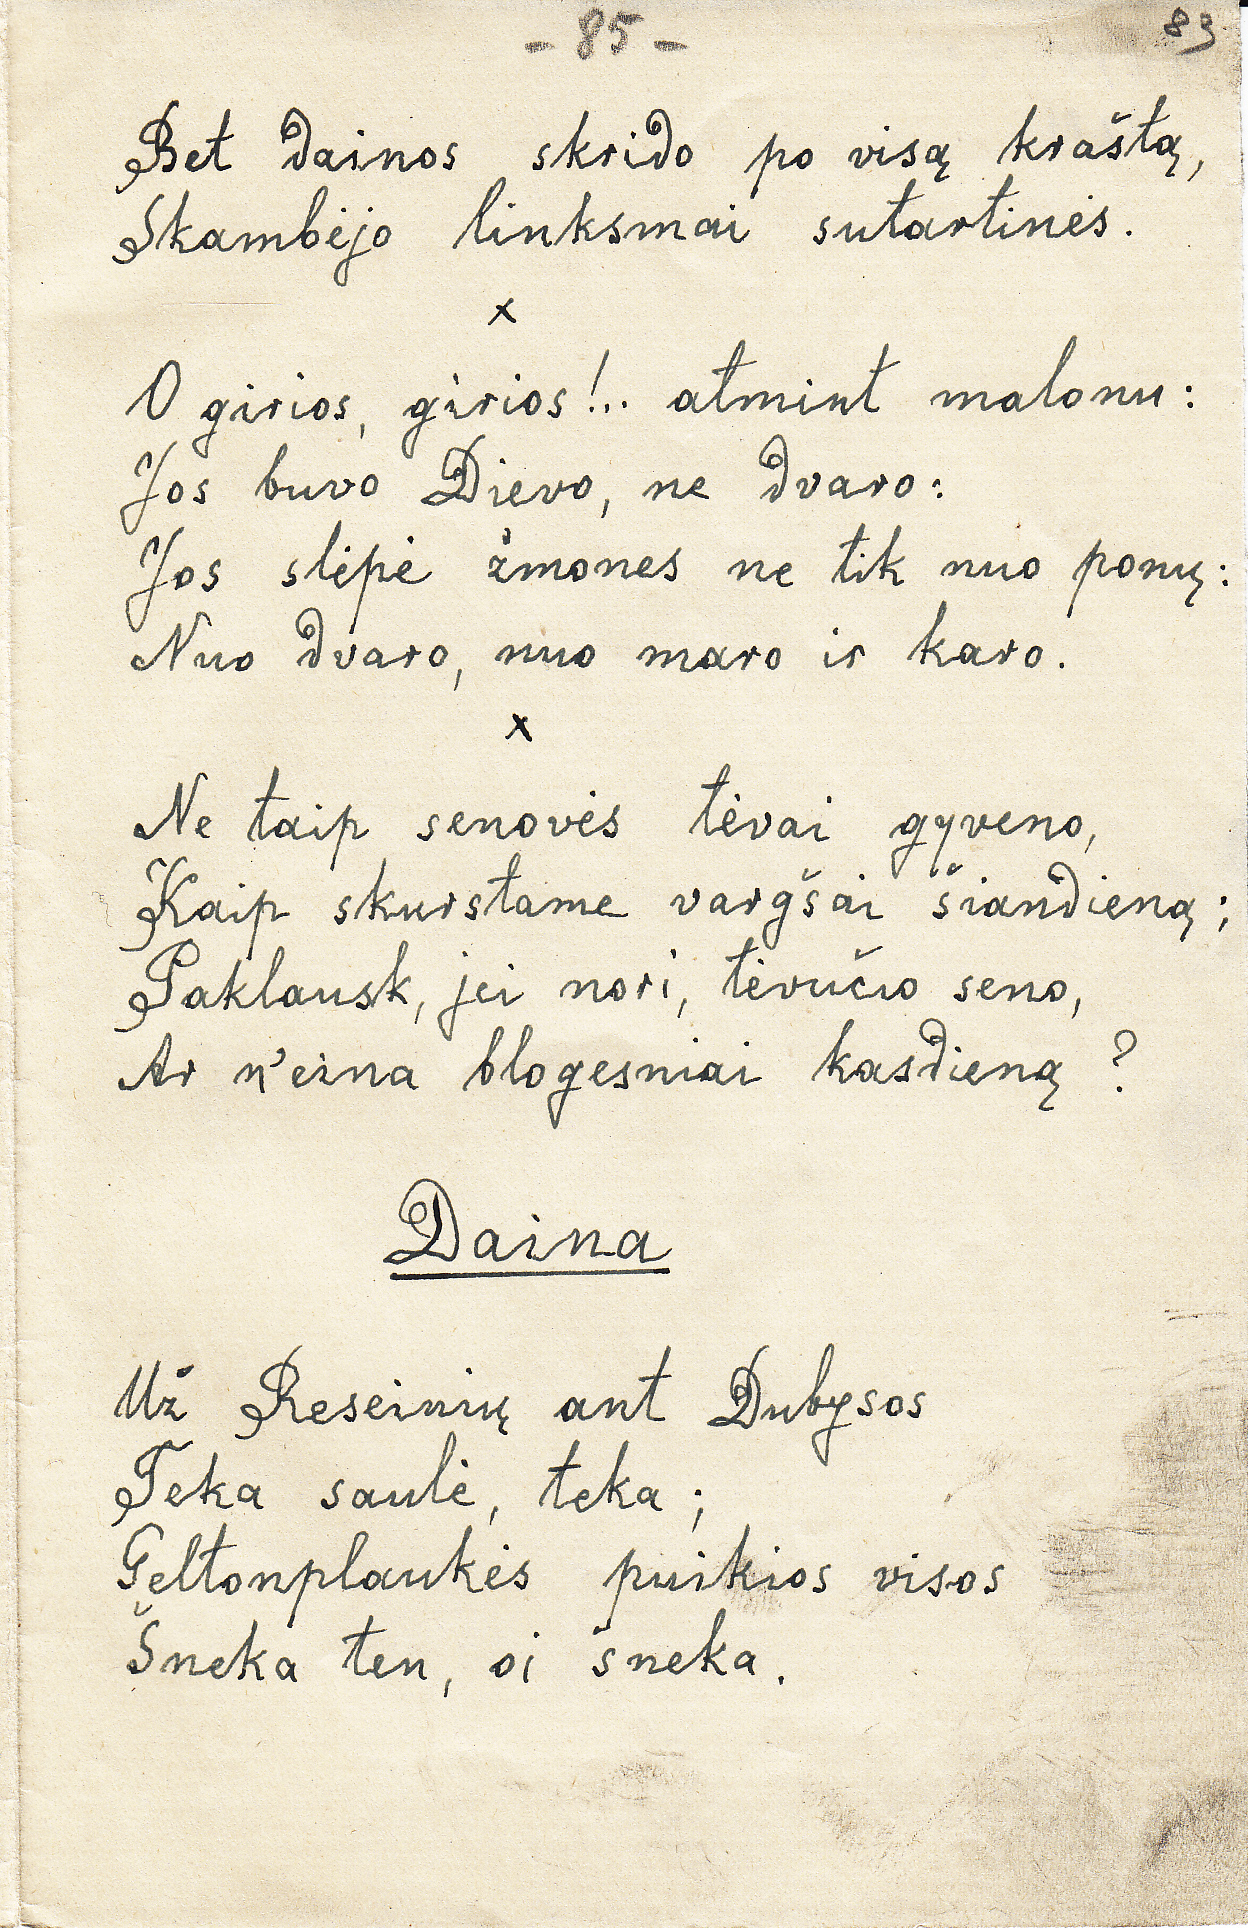 - 85 -
83
Bet dainos skrido po visą kraštą,
Skambėjo linksmai sutartinės.
x
O girios, girios!.. atmint malonu:
Jos buvo Dievo, ne dvaro:
Jos slėpė žmones ne tik nuo ponų:
Nuo dvaro, nuo maro ir karo.
x
Ne taip senovės tėvai gyveno,
Kaip skurstame vargšai šiandieną;
Paklausk, jei nori, tėvučio seno,
Ar n'eina blogesniai kasdieną?
Daina
Už Reseinių ant Dubysos
Teka saulė, teka;
Geltonplaukės puikios visos
Šneka ten, oi šneka.